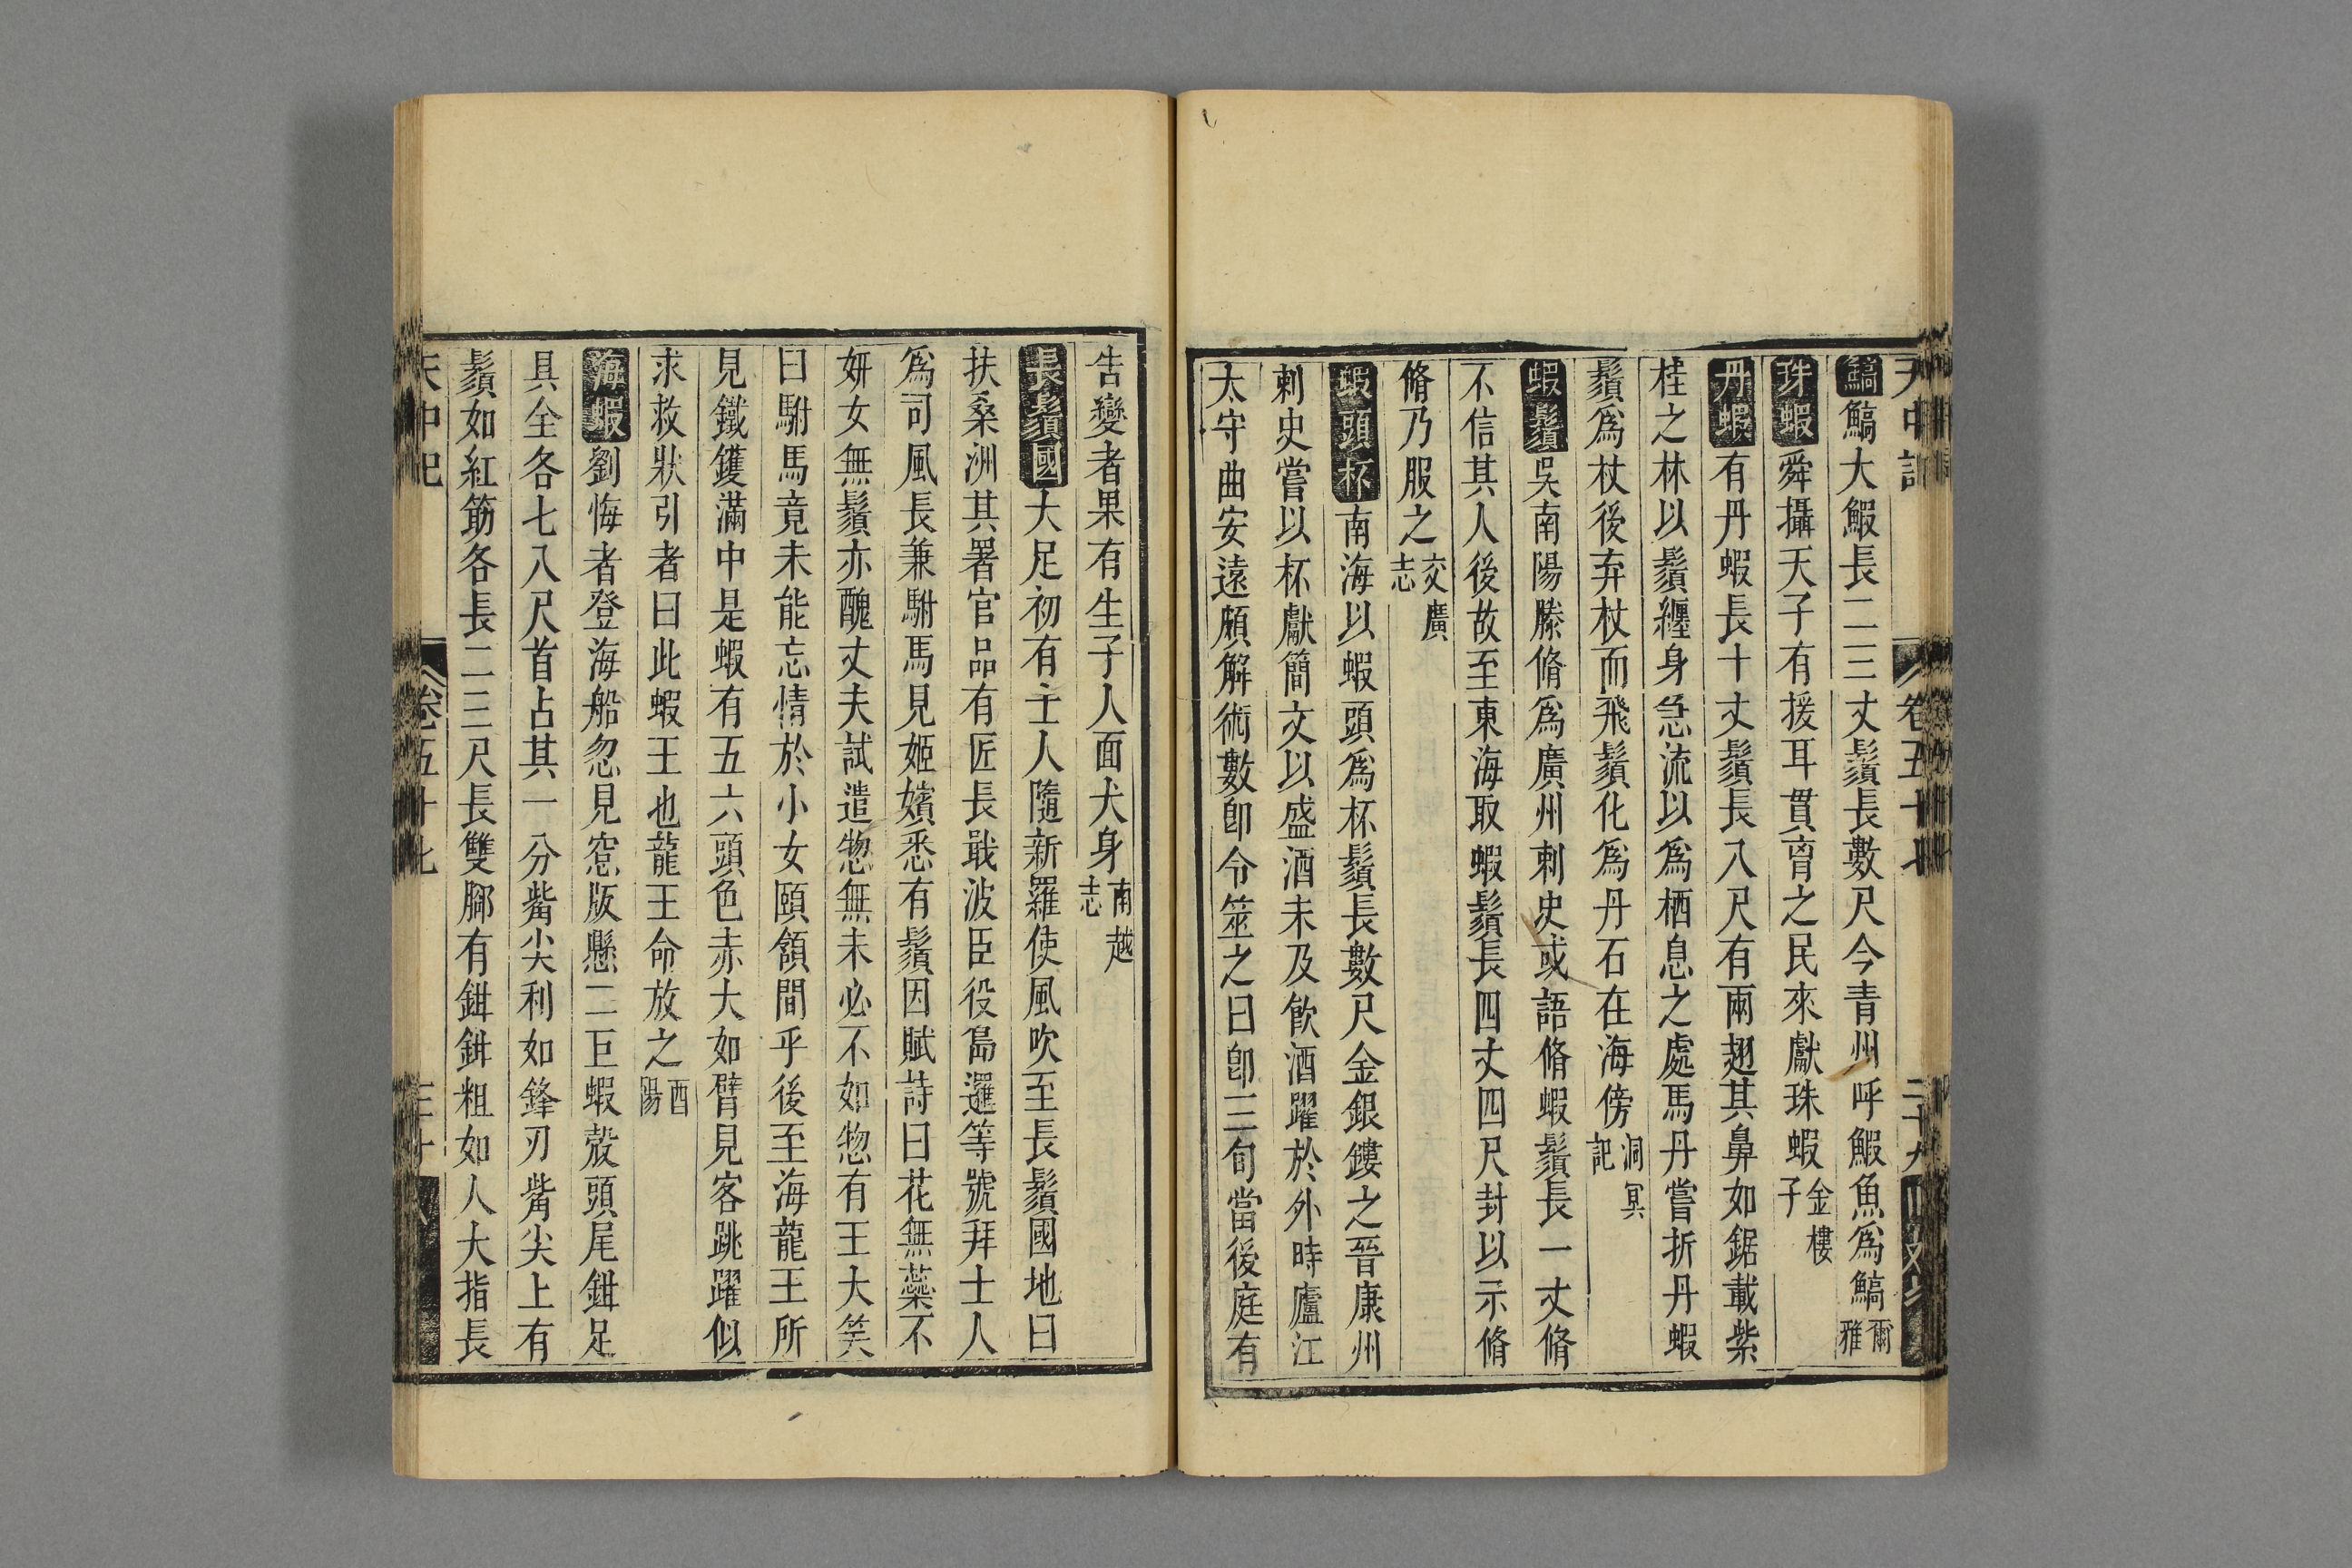 天中記 卷五十七 二十九
鰝鰝大鰕長二三丈鬚長數尺今青州呼鰕魚爲鰝爾雅
珠蝦舜攝天子有援耳貫胷之民來獻珠蝦金樓子
丹蝦有丹蝦長十丈鬚長八尺有兩翅其鼻如鋸載紫
桂之林以鬚纏身急流以爲栖息之處馬丹嘗折丹蝦
鬚爲杖後弃杖而飛鬚化爲丹石在海傍洞冥記
蝦鬚吳南陽滕脩爲廣州刺史或語脩蝦鬚長一丈脩
不信其人後故至東海取蝦鬚長四丈四尺封以示脩
脩乃服之交廣志
蝦頭杯南海以蝦頭爲杯鬚長數尺金銀鏤之晉康州
刺史嘗以杯獻簡文以盛酒未及飮酒躍於外時廬江
太守曲安遠頗解術數卽令筮之曰卽三旬當後庭有
告變者果有生子人面犬身南越志
長鬚國大足初有士人隨新羅使風吹至長鬚國地曰
扶桑洲其署官品有匠長戢波臣役島邏等號拜士人
爲司風長兼駙馬見姬嬪悉有鬚因賦詩曰花無蘂不
妍女無鬚亦醜丈夫試遣惣無未必不如惣有王大笑
曰駙馬竟未能忘情於小女頤頷間乎後至海龍王所
見鐵鑊滿中是蝦有五六頭色赤大如臂見客跳躍似
求救狀引者曰此蝦王也龍王命放之酉陽
海蝦劉恂者登海船忽見窓版懸二巨蝦殼頭尾鉗足
具全各七八尺首占其一分觜尖利如鋒刃觜尖上有
鬚如紅筯各長二三尺長雙脚有鉗鉗粗如人大指長
天中記 卷五十七 三十